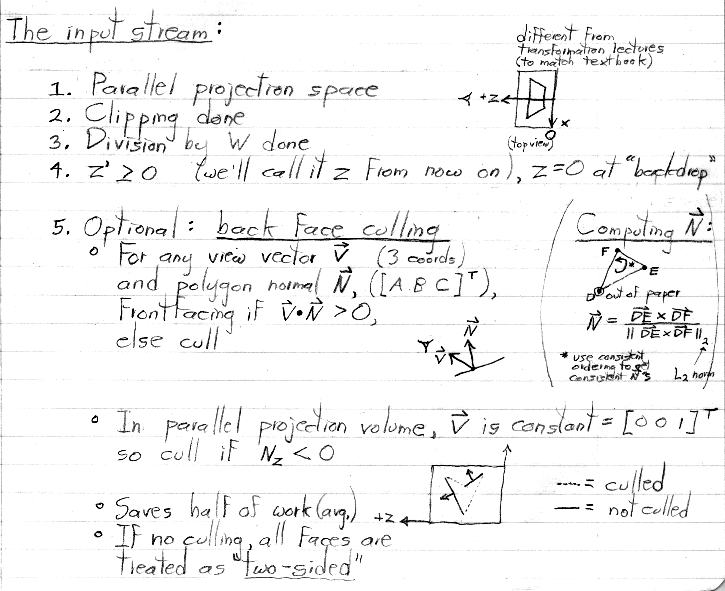 The input stream:
different from
transformation lectures
(to match textbook)
+Z
x
(top view)
1. Parallel projection space
2. Clipping done
3. Division by W done
4. Z' ≥ 0 (we'll call it z from now on), z=0 at "backdrop"
5. Optional: back face culling
° For any view vector V⃗ (3 coords)
and polygon normal N⃗, ([A B C]ᵀ),
Frontfacing if V⃗•N⃗ > 0,
else cull
V⃗
N⃗
Computing N⃗:
F
*
E
D out of paper
N⃗ = DE × DF / || DE × DF ||₂
* use consistent
ordering to get
consistent N⃗'s
L₂ norm
° In parallel projection volume, V⃗ is constant = [0 0 1]ᵀ
so cull if N_z < 0
---- = culled
— = not culled
° Saves half of work (avg.)
+z
° If no culling, all faces are
treated as "two-sided"